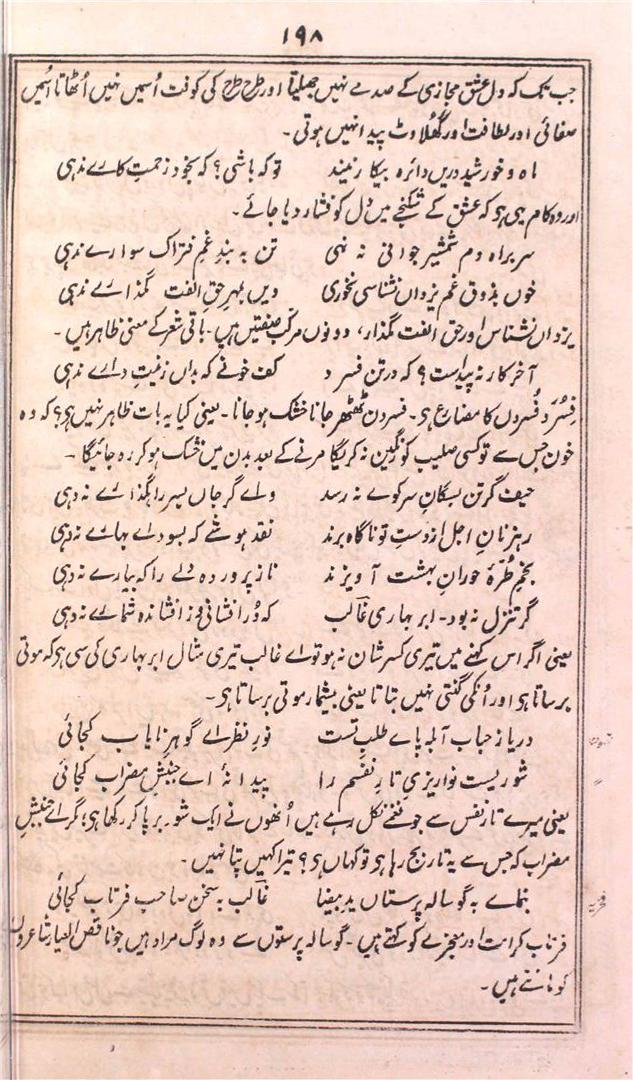 ۱۹۸
جب تک کہ دل عشق مجازی کے صدمے نہیں جھیلتا اور طرح طرح کی کوفت اُسمیں نہیں اُٹھاتا اُسمیں
صفائی اور لطافت اور گھُلاوٹ پیدا نہیں ہوتی۔
ماہ و خورشید دریں دائرہ بیکار نیند تو کہ باشی؟ کہ بخود زحمتِ کارے ندہی
اور وہ کام یہی ہو کہ عشق کے شکنجے میں دل کو فشار دیا جائے۔
سر براہ دم شمشیر جوانی نہ نہی تن بہ بندِ غمِ فتراک سوارے ندہی
خوں بذوق غم یزداں نشناسی نخوری دیں بمہرِ حقِ الفت گذارے ندہی
یزداں نشناس اور حق الفت گذار، دونوں مرکب صفتیں ہیں۔ باقی شعر کے معنی ظاہر ہیں۔
آخر کار نہ پیداست؟ کہ در تن فسرد کف خونے کہ بداں زینتِ دارے ندہی
فِسُرَد فُسردن کا مضارع ہی۔ فسردن ٹھٹھر جانا خشک ہو جانا۔ یعنی کیا یہ بات ظاہر نہیں ہو؟ کہ وہ
خون جس سے تو کسی صلیب کو رنگین نہ کریگا مرنے کے بعد بدن میں خشک ہو کر رہ جائیگا۔
حیف گر تن بسگانِ سر کوے نہ رسد واے گر جاں بسرِ راہگذارے نہ دہی
رہزنانِ اجل از دستِ تو ناگاہ برند نقد ہوشے کہ بسوداے بہارے نہ دہی
بخمِ طُرّۂ حورانِ بہشت آویزند ناز پروردہ دلے را کہ بیارے نہ دہی
گر تنزل نہ بود۔ ابر بہاری غالب کہ دُر افشانی و ز افشاندہ شمارے نہ دہی
یعنی اگر اس کہنے میں تیری کسر شان نہ ہو تو اے غالب تیری مثال ابر بہاری کی سی ہو کہ موتی
برساتا ہو اور اُنکی گنتی نہیں بتاتا یعنی بیشمار موتی برساتا ہو۔
دریا ز حباب آبلہ پاے طلبِ تست نورِ نظر اے گوہر نایاب کجائی
شوریست نوا ریزیِ تارِ نفسم را پیدا نۂ اے جنبشِ مضراب کجائی
یعنی میرے تار نفس سے جو نغمے نکل رہے ہیں اُنھوں نے ایک شور برپا کر رکھا ہو؛ مگر اے جنبشِ
مضراب کہ جس سے یہ تار بج رہا ہو تو کہاں ہو؟ تیرا کہیں پتا نہیں۔
بنماے بہ گوسالہ پرستاں یدِ بیضا غالب بہ سخن صاحب فرتاب کجائی
فرتاب کرامت اور معجزے کو کہتے ہیں۔ گوسالہ پرستوں سے وہ لوگ مراد ہیں جو ناقص العیار شاعروں
کو مانتے ہیں۔